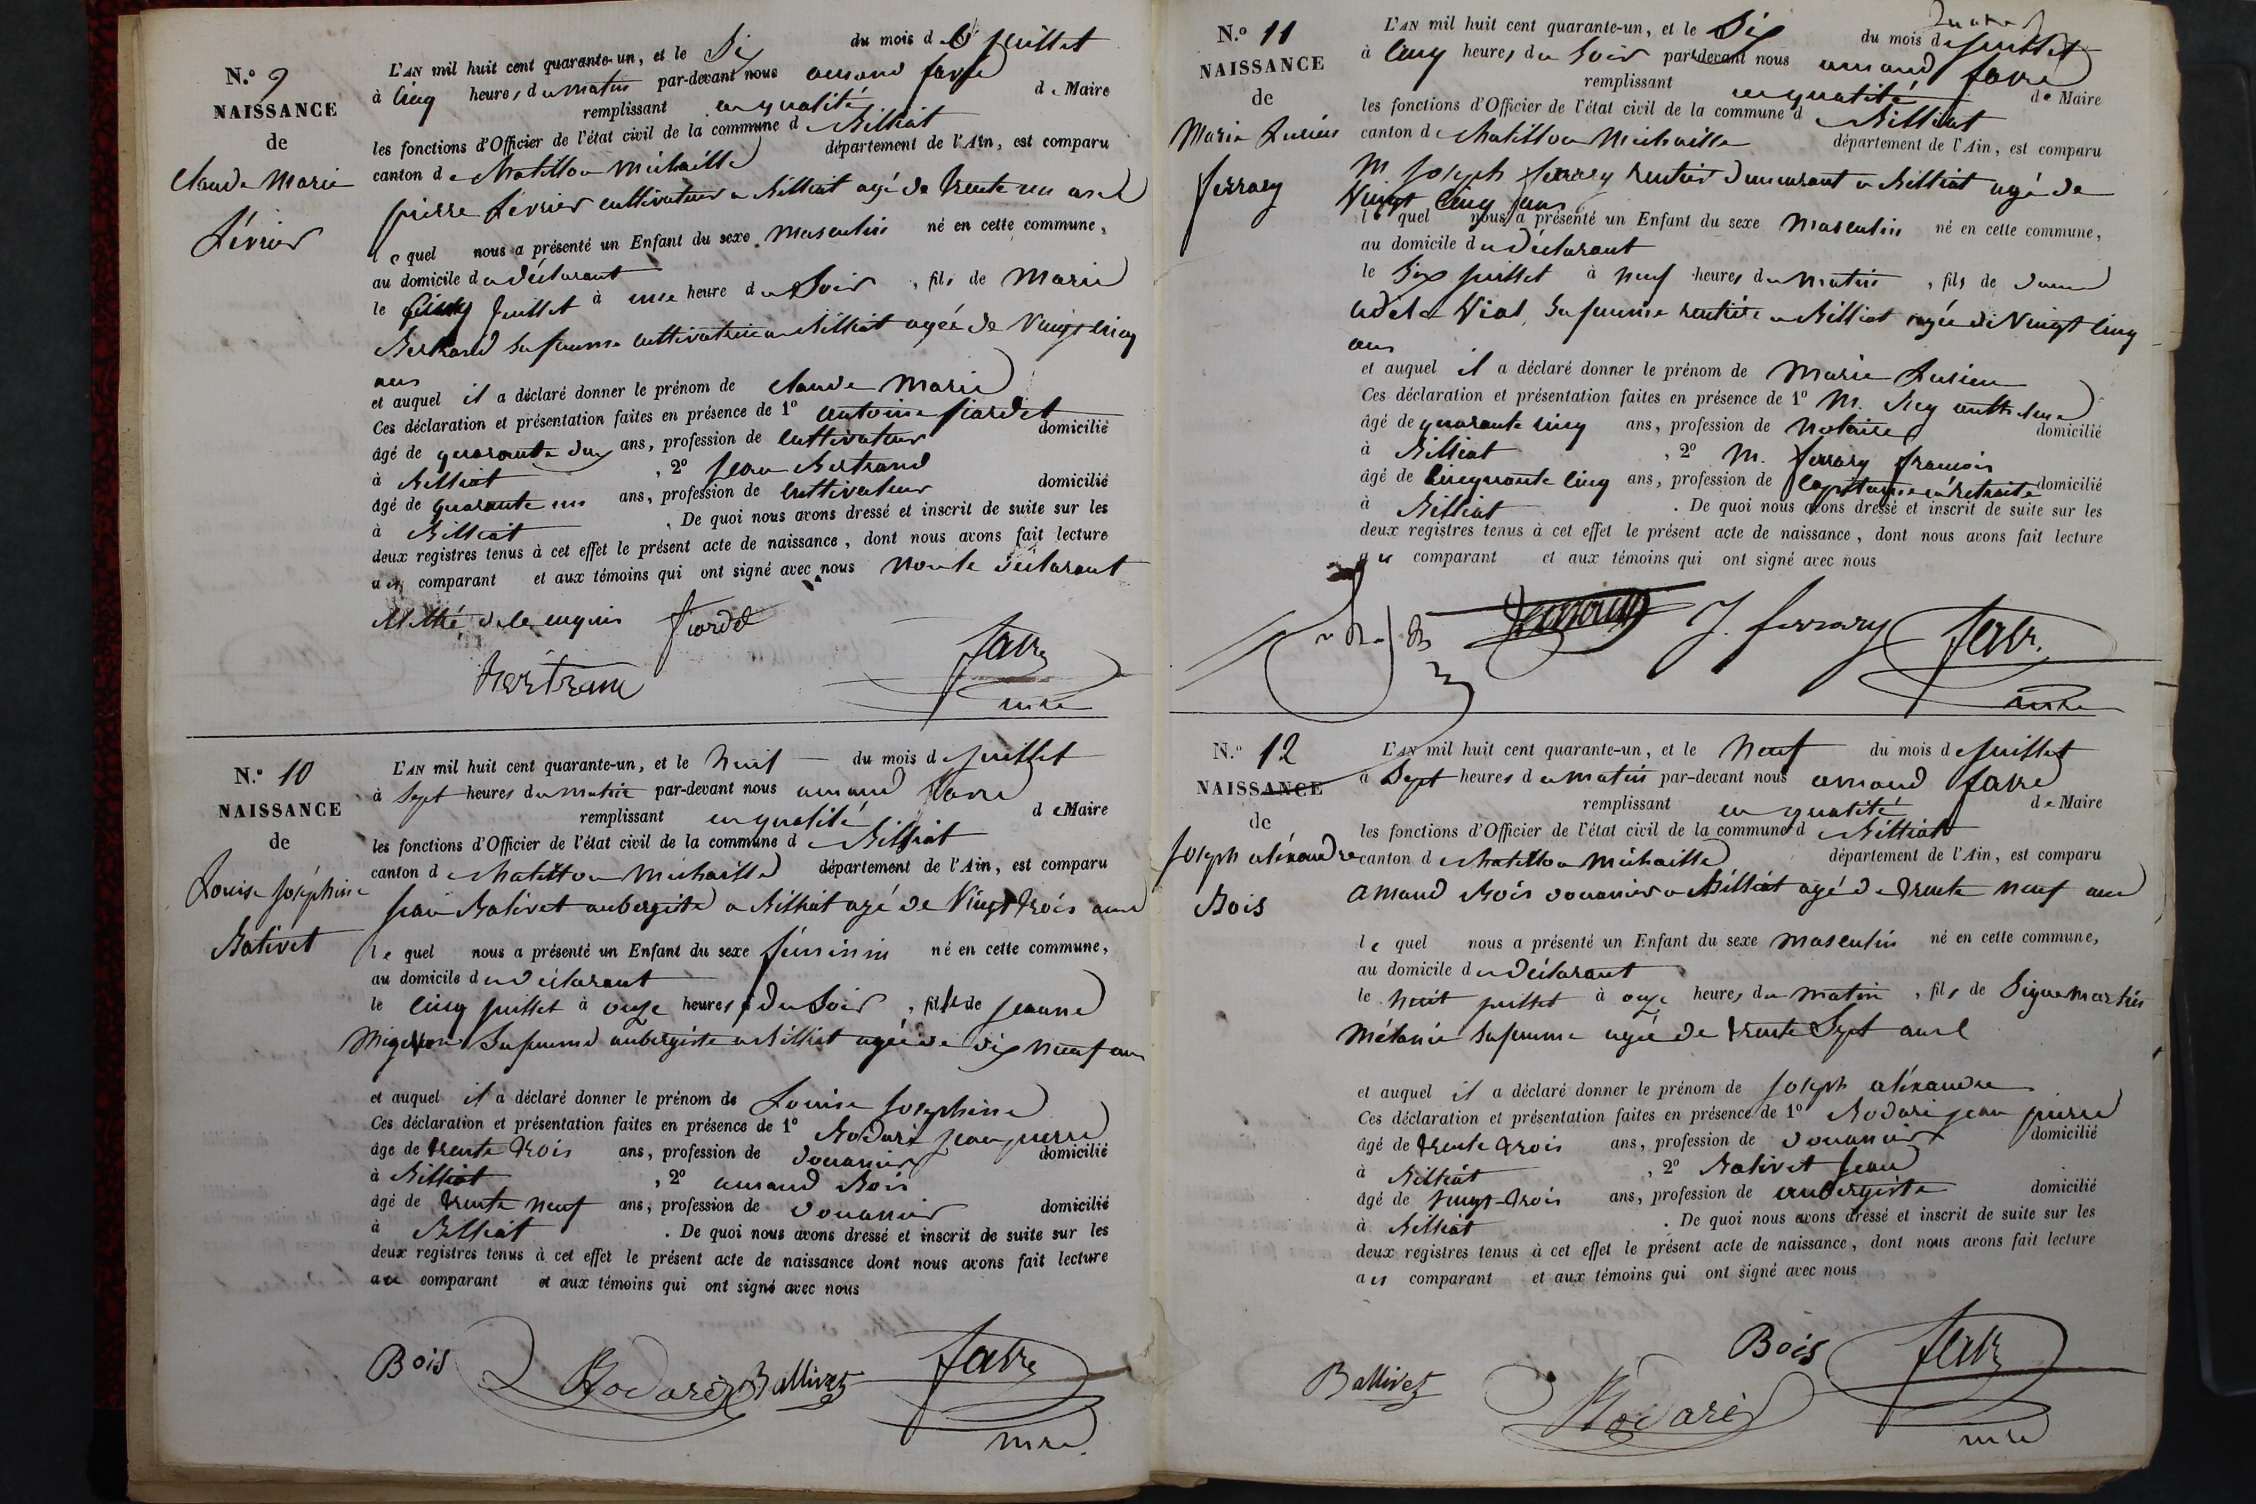 N.º 9
NAISSANCE
de
Claude Marie
Févrior
L'AN mil huit cent quarante-un, et le Six du mois de juillet
à cinq heures du matin par-devant nous amand favre
remplissant en qualité de Maire
les fonctions d'Officier de l'état civil de la commune de Billiat
canton de Chatillon Michaille département de l'Ain, est comparu
pierre cultivateur a Billiat agé de trente un ans
lequel nous a présenté un Enfant du sexe masculin né en cette commune,
au domicile du déclarant
le cinq juillet à une heure du Soir, fils de Marie
Bertrand sa femme cultivatrice a Billiat agée de Vingt cinq
ans
et auquel il a déclaré donner le prénom de Claude Marie
Ces déclaration et présentation faites en présence de 1º antoine fiardet
âgé de quarante deux ans, profession de cultivateur domicilié
à Billiat, 2º jean Bertrand
âgé de quarante un ans, profession de cultivateur domicilié
à Billiat. De quoi nous avons dressé et inscrit de suite sur les
deux registres tenus à cet effet le présent acte de naissance, dont nous avons fait lecture
aux comparant et aux témoins qui ont signé avec nous non le déclarant
de ce enquis
Bertran favre
mre
N.º 10
NAISSANCE
de
Louise Joséphine
Balivet
L'AN mil huit cent quarante-un, et le huit du mois de juillet
à Sept heures du matin par-devant nous amand favre
remplissant en qualité de Maire
les fonctions d'Officier de l'état civil de la commune de Billiat
canton de Chatillon Michaille département de l'Ain, est comparu
jean Balivet aubergiste a Billiat agé de Vingt trois ans
lequel nous a présenté un Enfant du sexe féminin né en cette commune,
au domicile du déclarant
le cinq juillet à onze heures du Soir, fille de jeanne
Sa femme aubergiste a Billiat agée de dix neuf ans
et auquel il a déclaré donner le prénom de Louise Josephine
Ces déclaration et présentation faites en présence de 1º Rodari jean pierre
âgé de trente trois ans, profession de douanier domicilié
à Billiat, 2º amand Bois
âgé de trente neuf ans, profession de douanier domicilié
à Billiat. De quoi nous avons dressé et inscrit de suite sur les
deux registres tenus à cet effet le présent acte de naissance dont nous avons fait lecture
aux comparant et aux témoins qui ont signé avec nous
Bois Rodari Ballivet favre
mre
N.º 11
NAISSANCE
de
Marie Lucien
ferrary
L'AN mil huit cent quarante-un, et le Six du mois de juillet
à cinq heures du Soir par-devant nous amand favre
remplissant en qualité de Maire
les fonctions d'Officier de l'état civil de la commune de Billiat
canton de Chatillon Michaille département de l'Ain, est comparu
M. Joseph ferrary rentier demeurant a Billiat agé de
Vingt cinq ans
lequel nous a présenté un Enfant du sexe masculin né en cette commune,
au domicile du déclarant
le Six juillet à neuf heures du matin, fils de dame
adele Vial, sa femme rentière a Billiat agée de Vingt cinq
ans
et auquel il a déclaré donner le prénom de Marie Lucien
Ces déclaration et présentation faites en présence de 1º M. Rey anthelme
âgé de quarante cinq ans, profession de Notaire domicilié
à Billiat, 2º M. ferrary françois
âgé de cinquante cinq ans, profession de capitaine en retraite domicilié
à Billiat. De quoi nous avons dressé et inscrit de suite sur les
deux registres tenus à cet effet le présent acte de naissance, dont nous avons fait lecture
aux comparant et aux témoins qui ont signé avec nous
J. ferrary favr.
mre
N.º 12
NAISSANCE
de
Joseph alexandre
Bois
L'AN mil huit cent quarante-un, et le Neuf du mois de juillet
à Sept heures du matin par-devant nous amand favre
remplissant en qualité de Maire
les fonctions d'Officier de l'état civil de la commune de Billiat
canton de Chatillon Michaille département de l'Ain, est comparu
amand Bois douanier a Billiat agé de trente neuf ans
lequel nous a présenté un Enfant du sexe masculin né en cette commune,
au domicile du déclarant
le huit juillet à onze heures du matin, fils de
Mélanie sa femme agée de trente Sept ans
et auquel il a déclaré donner le prénom de Joseph alexandre
Ces déclaration et présentation faites en présence de 1º Rodari jean pierre
âgé de trente trois ans, profession de douanier domicilié
à Billiat, 2º Balivet jean
âgé de vingt-trois ans, profession de aubergiste domicilié
à Billiat. De quoi nous avons dressé et inscrit de suite sur les
deux registres tenus à cet effet le présent acte de naissance, dont nous avons fait lecture
aux comparant et aux témoins qui ont signé avec nous
Ballivet Rodari Bois favr
mre